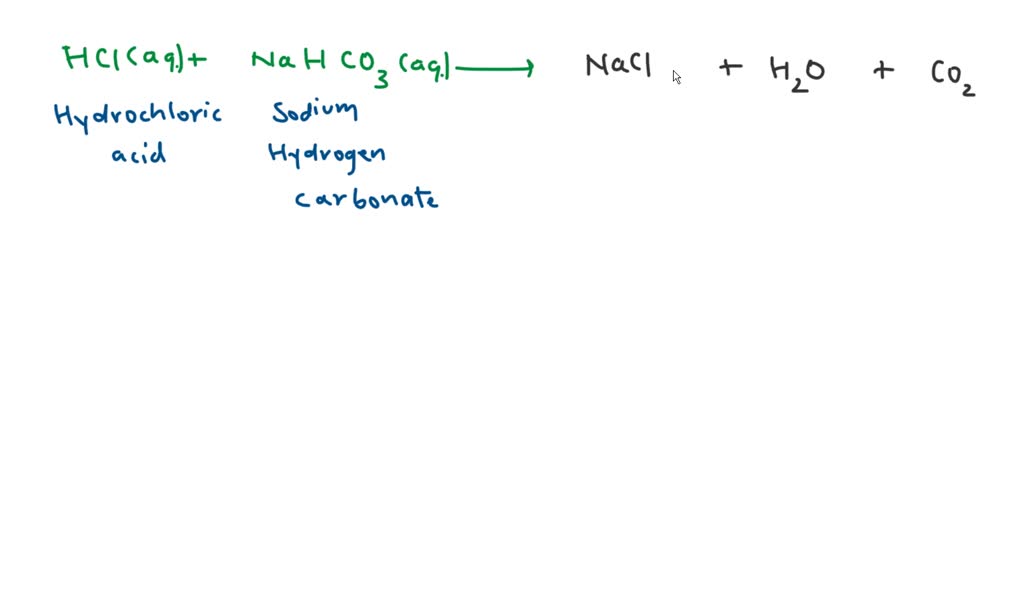 HCl(aq.)+ NaHCO₃(aq.) ⟶ NaCl + H₂O + CO₂
Hydrochloric Sodium
acid Hydrogen
carbonate